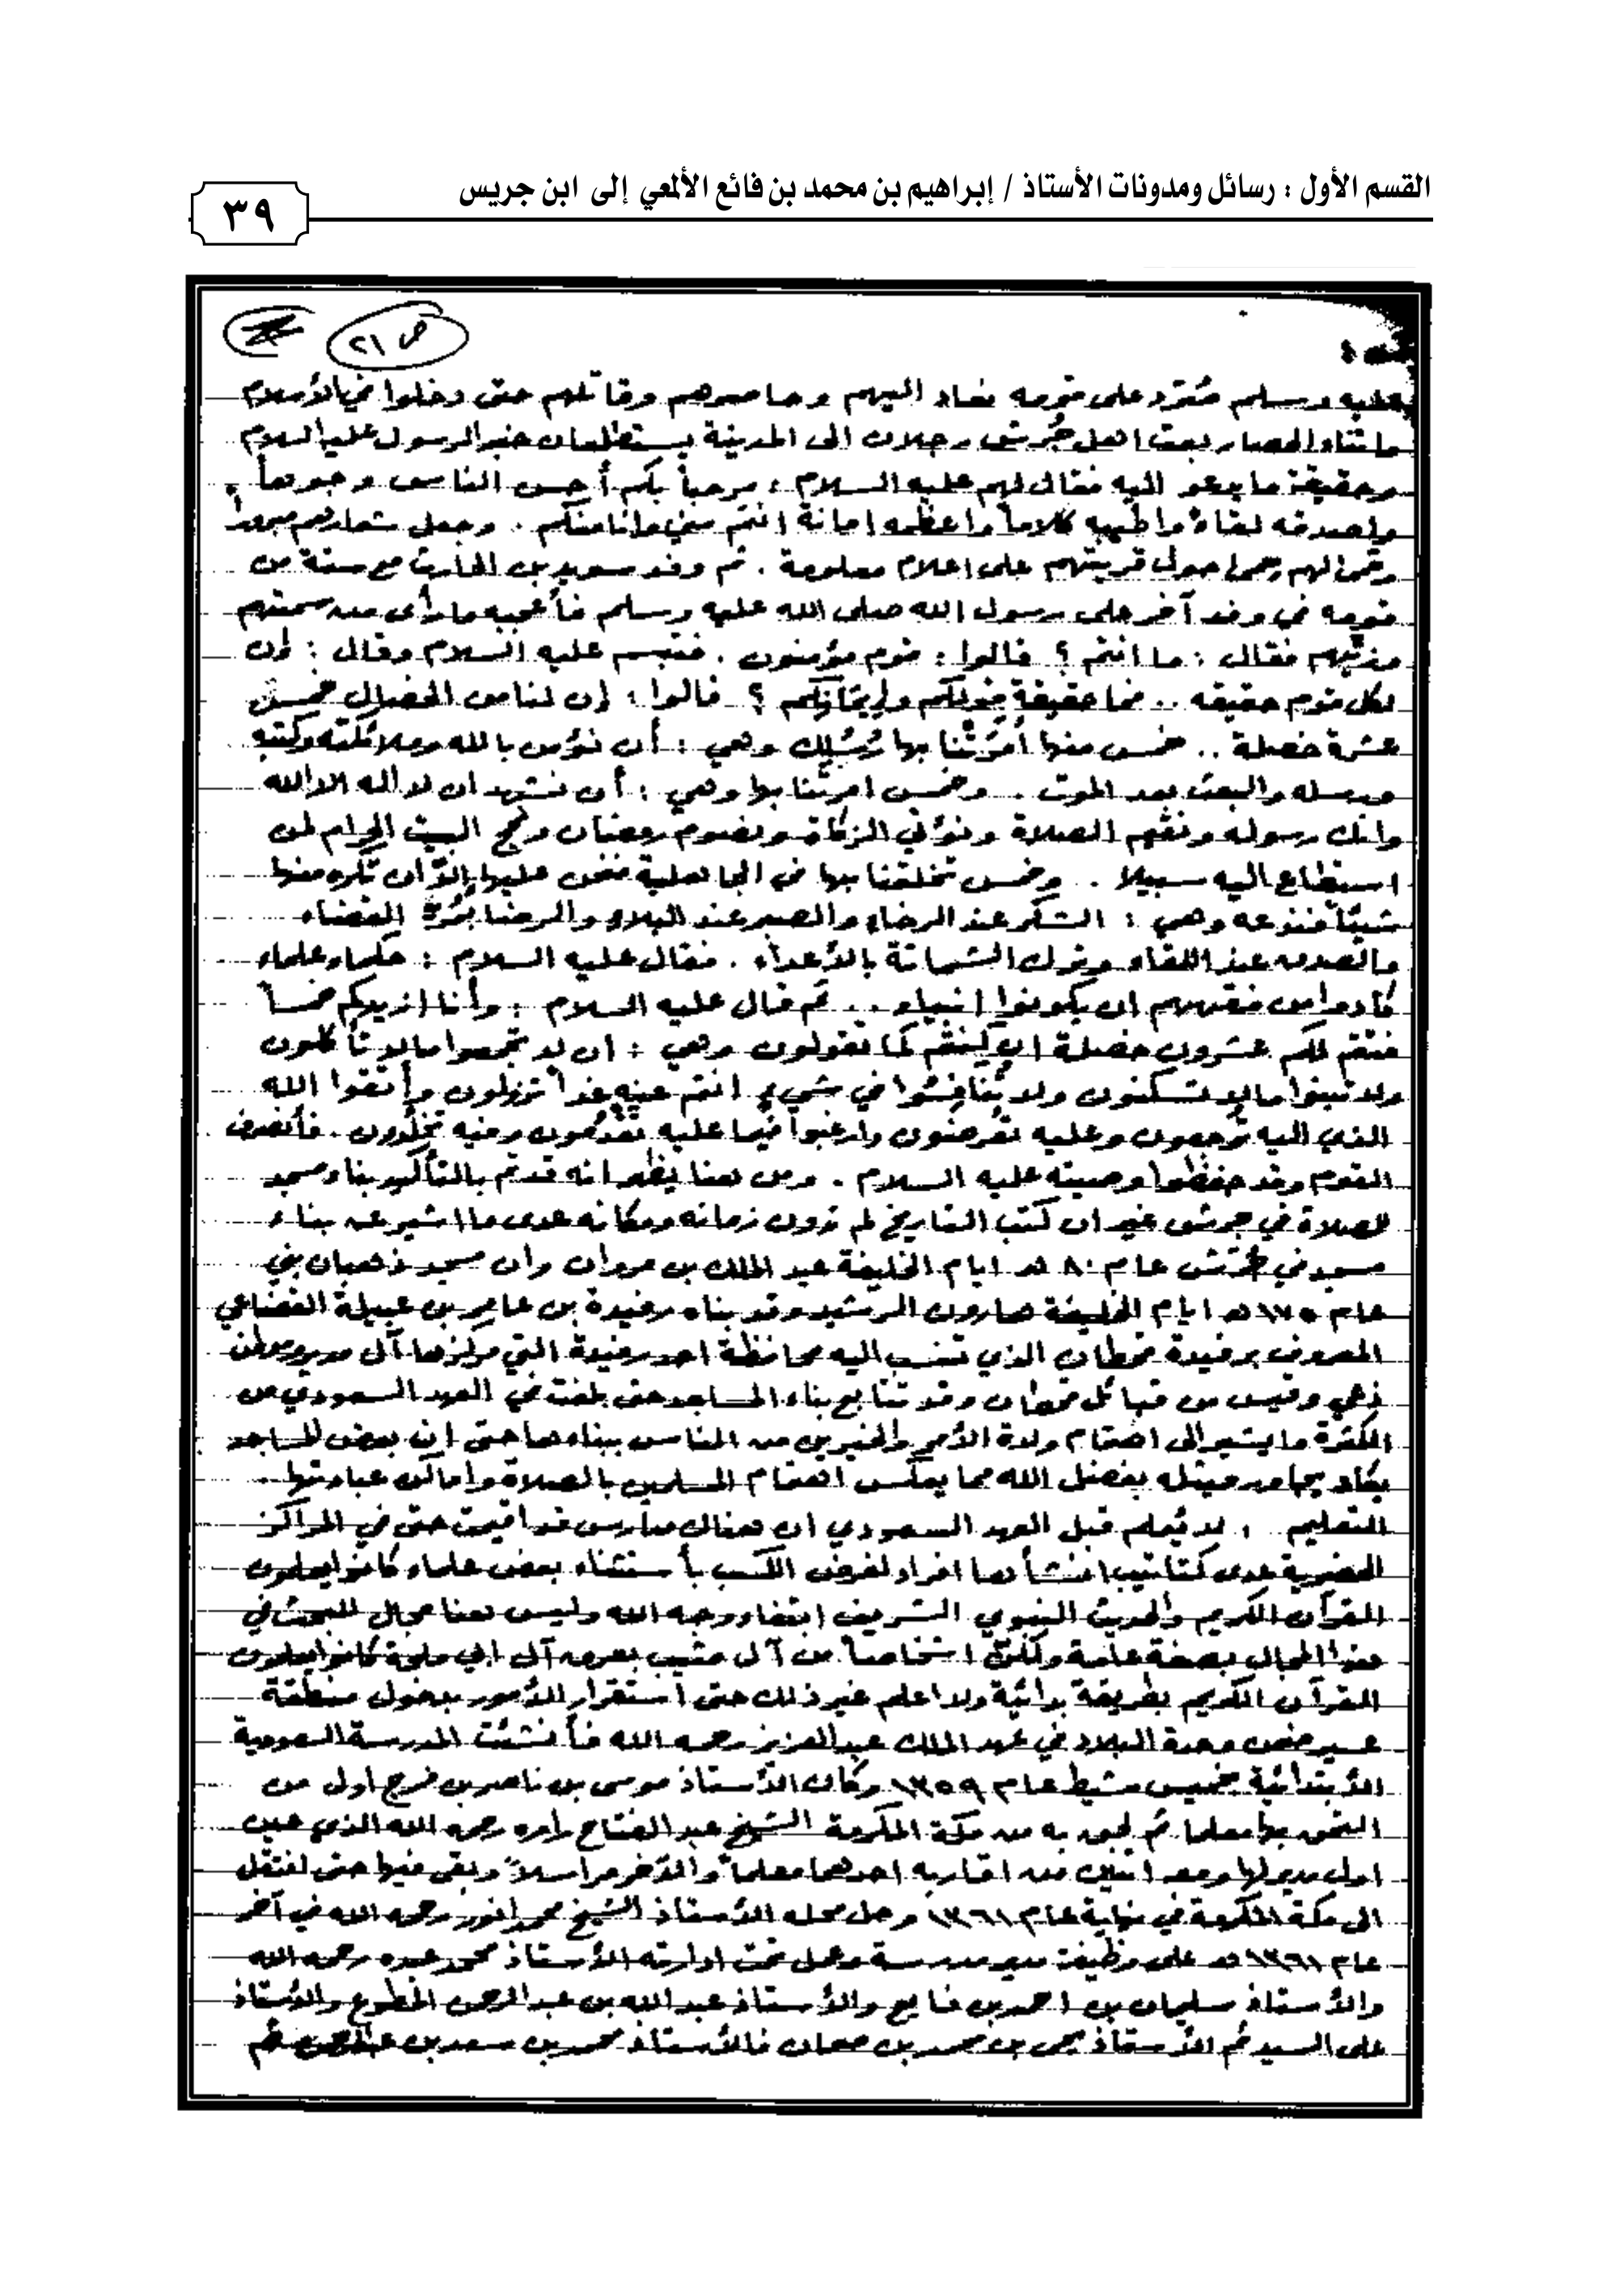 القسم الأول : رسائل ومدونات الأستاذ / إبراهيم بن محمد بن فائع الألمعي إلى ابن جريس
٣٩
ص ٢١
عليه وسلم على قومه فعاد اليهم وحاصرهم وقاتلهم حتى دخلوا في الأسلام
اثناء الحصار بعث اهل جُرش رجلان الى المدينة يستطلعان خبر الرسول عليه السلام
وحقيقة ما يدعو اليه فقال لهم عليه السلام : مرحباً بكم أحسن الناس وجوهاً
واصدقه لقاءً واطيبه كلاماً واعظمه امانة انتم مني وانا منكم . وجعل شعارهم مبروراً
وحمى لهم حمى حول قريتهم على اعلام معلومة . ثم وفد سويد بن الحارث مع ستة من
قومه في وفد آخر على رسول الله صلى الله عليه وسلم فأعجبه ما رأى من سمتهم
وزيّهم فقال : ما انتم ؟ قالوا : قوم مؤمنون . فتبسم عليه السلام وقال : إن
لكل قوم حقيقه .. فما حقيقة قولكم وإيمانكم ؟ قالوا : إن لنا من الخصال خمس
عشرة خصلة .. خمس منها أمَرَتْنا بها رُسُلك وهي : أن نؤمن بالله وملائكته وكتبه
ورسله والبعث بعد الموت . وخمس امرتنا بها وهي : أن نشهد ان لا اله الا الله
وانك رسوله ونقيم الصلاة ونؤتي الزكاة ونصوم رمضان ونحج البيت الحرام لمن
استطاع اليه سبيلا . وخمس تخلقنا بها في الجاهلية فنحن عليها إلّا ان تكره منها
شيئاً فننزعه وهي : الشكر عند الرخاء والصبر عند البلاء والرضا بمُرّ القضاء
والصدق عند اللقاء وترك الشماتة بالأعداء . فقال عليه السلام : حكماء علماء
كادوا من فقههم ان يكونوا انبياء .. ثم قال عليه السلام : وأنا ازيدكم خمساً
فتتم لكم عشرون خصلة ان كنتم كما تقولون وهي : ان لا تجمعوا مالا تأكلون
ولا تبنوا مالا تسكنون ولا تنافسُوا في شيءٍ انتم عنه غداً تزولون وأتقوا الله
الذي اليه تُرجعون وعليه تعرضون وارغبوا فيما عليه تقدمون وفيه تخلّدون . فأنصرف
القوم وقد حفظوا وصيته عليه السلام . ومن هنا يظهر انه قد تم بالتأكيد بناء مسجد
للصلاة في جرش غير ان كتب التاريخ لم تدون زمانه ومكانه عدى ما اشير عن بناء
مسجد في جُرَش عام ٨٠ هـ ايام الخليفة عبد الملك بن مروان وان مسجد ذهبان بني
عام ١٧٥ هـ ايام الخليفة هارون الرشيد وقد بناه رفيدة بن عامر بن عبيلة القضاعي
المعروف برفيدة قحطان الذي تنسب اليه محافظة احد رفيدة التي مركزها آل
وقيس من قبائل قحطان وقد تتابع بناء المساجد حتى بلغت في العهد السعودي من
الكثرة ما يشير الى اهتمام ولاة الأمر والخيرين من الناس ببناءها حتى ان بعض المساجد
يكاد يجاور مثيله بفضل الله مما يعكس اهتمام المسلمين بالصلاة واماكن عبادتها ..
التعليم : لا يُعلم قبل العهد السعودي ان هناك مدارس قد اقيمت حتى في المراكز
الحضرية عدى كتاتيب انشأها افراد لغرض الكسب بأستثناء بعض علماء كانوا يعلمون
القرآن الكريم والحديث النبوي الشريف ابتغاء وجه الله وليس هنا مجال للبحث في
هذا المجال بصفة عامة ولكنّ اشخاصاً من آل مشيب بعرق آل ابي ملحة كانوا يعلمون
القرآن الكريم بطريقة بدائية ولا اعلم غير ذلك حتى استقرار الأمور بدخول منطقة
عسير ضمن وحدة البلاد في عهد الملك عبد العزيز رحمه الله فأنشئت المدرسة السعودية
الأبتدائية بخميس مشيط عام ١٣٥٩ وكان الأستاذ موسى بن ناصر بن فرج اول من
التحق بها معلما ثم لحق به من مكة المكرمة الشيخ عبد الفتاح راوه رحمه الله الذي عين
اول مدير لها ومعه اثنين من اقاربه احدهما معلماً والأخر مراسلاً وبقى فيها حتى انتقل
الى مكة المكرمة في نهاية عام ١٣٦١ وحل محله الأستاذ الشيخ محمد انور رحمه الله في آخر
عام ١٣٦١ هـ على وظيفة مدير مدرسة وعمل تحت ادارته الأستاذ محمد عبده رحمه الله
والأستاذ سليمان بن احمد بن فايع والأستاذ عبد الله بن عبد الرحمن المطوع والأستاذ
على السيد ثم الأستاذ يحي بن محمد بن فالأستاذ محمد بن سعد بن ثم